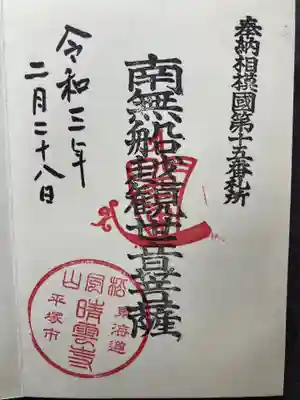 奉納相模國第十五番札所
南無船越観世音菩薩
令和三年
二月二十八日
東海道
松風山
晴雲寺
平塚市